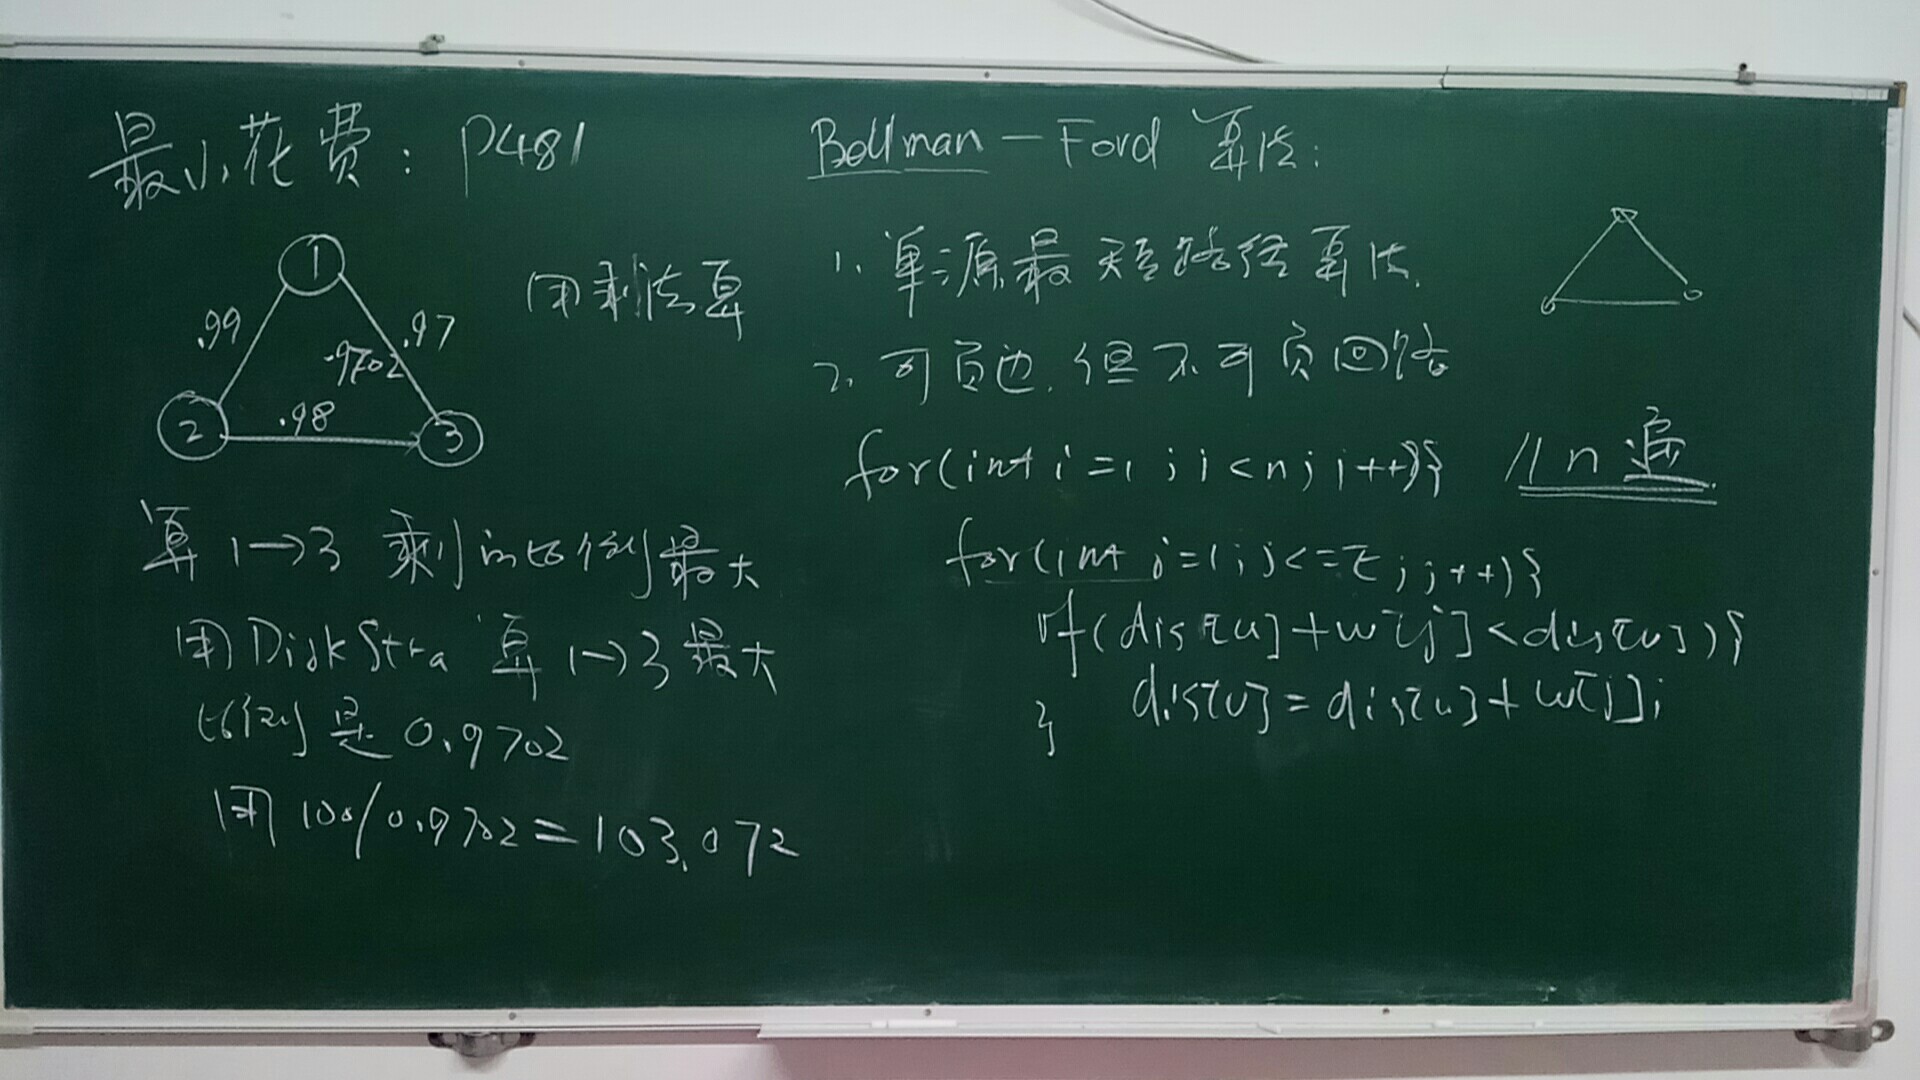 最小花费: P481
1
.99
.97
.9702
2
.98
3
用剩法算
算1→3 剩的比例最大
用DiskStra 算1→3最大
比例是0.9702
用100/0.9702=103.072
Bellman-Ford 算法:
1. 单源最短路径算法.
2. 可负边, 但不可负回路
for(int i=1;i<n;i++){ //n遍
for(int j=1;j<=E;j++){
if(dis[u]+w[j]<dis[v]){
dis[v]=dis[u]+w[j];
}